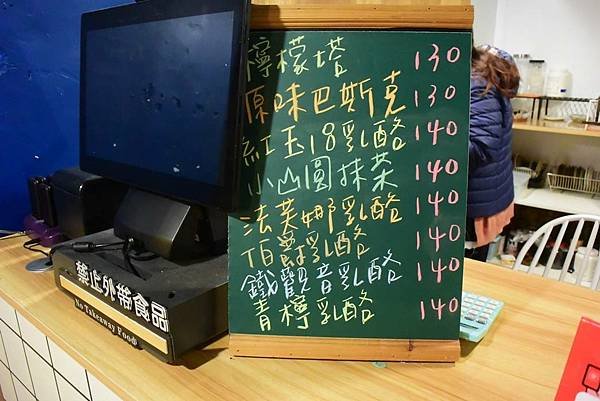 檸檬塔 130
原味巴斯克 130
紅玉18乳酪 140
小山園抹茶 140
法芙娜乳酪 140
伯爵乳酪 140
鐵觀音乳酪 140
青檸乳酪 140
禁止外帶食品
No Takeaway Food